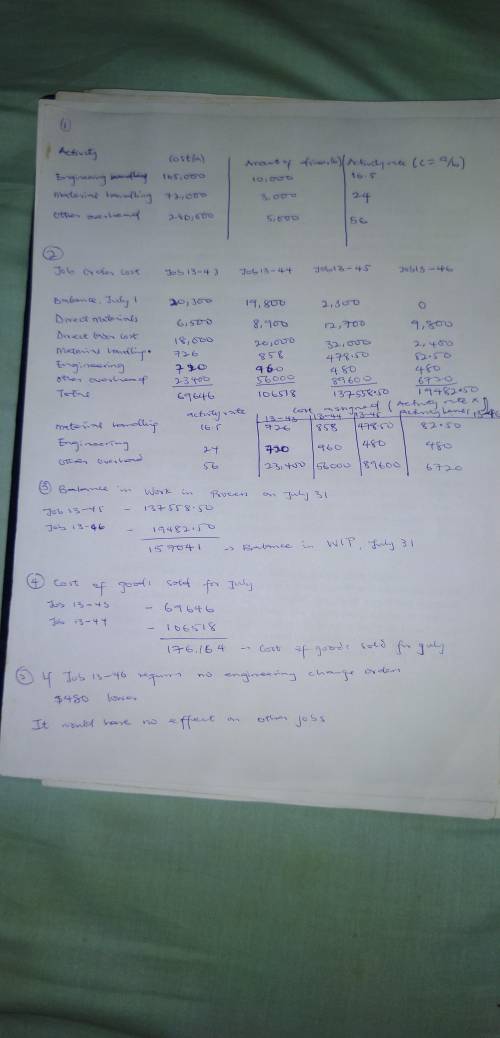 ①
Activity Cost(a) Amount of driver(b) Activity rate (c = a/b)
Engineering handling 165,000 10,000 16.5
Material handling 72,000 3,000 24
Other overhead 280,000 5,000 56
②
Job Order Cost Job 13-43 Job 13-44 Job 13-45 Job 13-46
Balance, July 1 20,300 19,800 2,300 0
Direct materials 6,500 8,900 12,700 9,800
Direct labor cost 18,000 20,000 32,000 2,400
Material handling 726 858 478.50 82.50
Engineering 720 960 480 480
Other overhead 23400 56000 89600 6720
Totals 69646 106518 137558.50 19482.50
activity rate Cost assigned (Activity rate × activity base)
13-43 13-44 13-45 13-46
Material handling 16.5 726 858 478.50 82.50
Engineering 24 720 960 480 480
Other overhead 56 23,400 56000 89600 6720
③ Balance in Work in Process on July 31
Job 13-45 - 137558.50
Job 13-46 - 19482.50
159041 -> Balance in WIP, July 31
④ Cost of goods sold for July
Job 13-43 - 69646
Job 13-44 - 106518
176,164 -> Cost of goods sold for July
⑤ If Job 13-46 require no engineering change orders
$480 lower
It would have no effect on other jobs